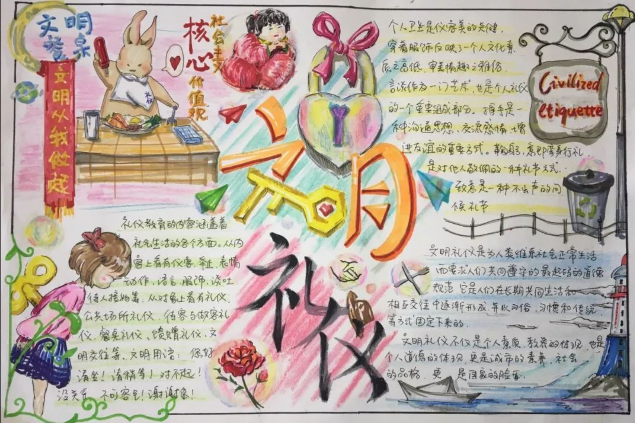 文明
礼仪
文明
文明从我做起
社会主义
核心
价值观
Civilized
etiquette
个人卫生是仪容美的关键,
穿着服饰反映了一个人文化素
质之高低, 审美情趣之雅俗。
言谈作为一门艺术, 也是个人礼仪
的一个重要组成部分。握手是一
种沟通思想、交流感情、增
进友谊的重要方式。鞠躬, 意即弯身行礼,
是对他人敬佩的一种礼节方式。
致意是一种不出声的问
候礼节
礼仪教育的内容涵盖着
社会生活的各个方面。从内
容上看有仪容、举止、表情、
动作、语言、服饰、谈吐、
待人接物等, 从对象上看有个人礼仪、
公共场所礼仪、待客与做客礼
仪、餐桌礼仪、馈赠礼仪、文
明交往等。文明用语: 您好!
请坐! 请稍等! 对不起!
没关系 不要客气! 谢谢您!
文明礼仪是为人类维系社会正常生活
而要求人们共同遵守的最起码的道德
规范, 它是人们在长期共同生活和
相互交往中逐渐形成, 并以风俗、习惯和传统
等方式固定下来的。
文明礼仪不仅是个人素质、教养的体现, 也是
个人道德的体现, 更是城市的素养、社会
的品格, 更是国家的脸面。